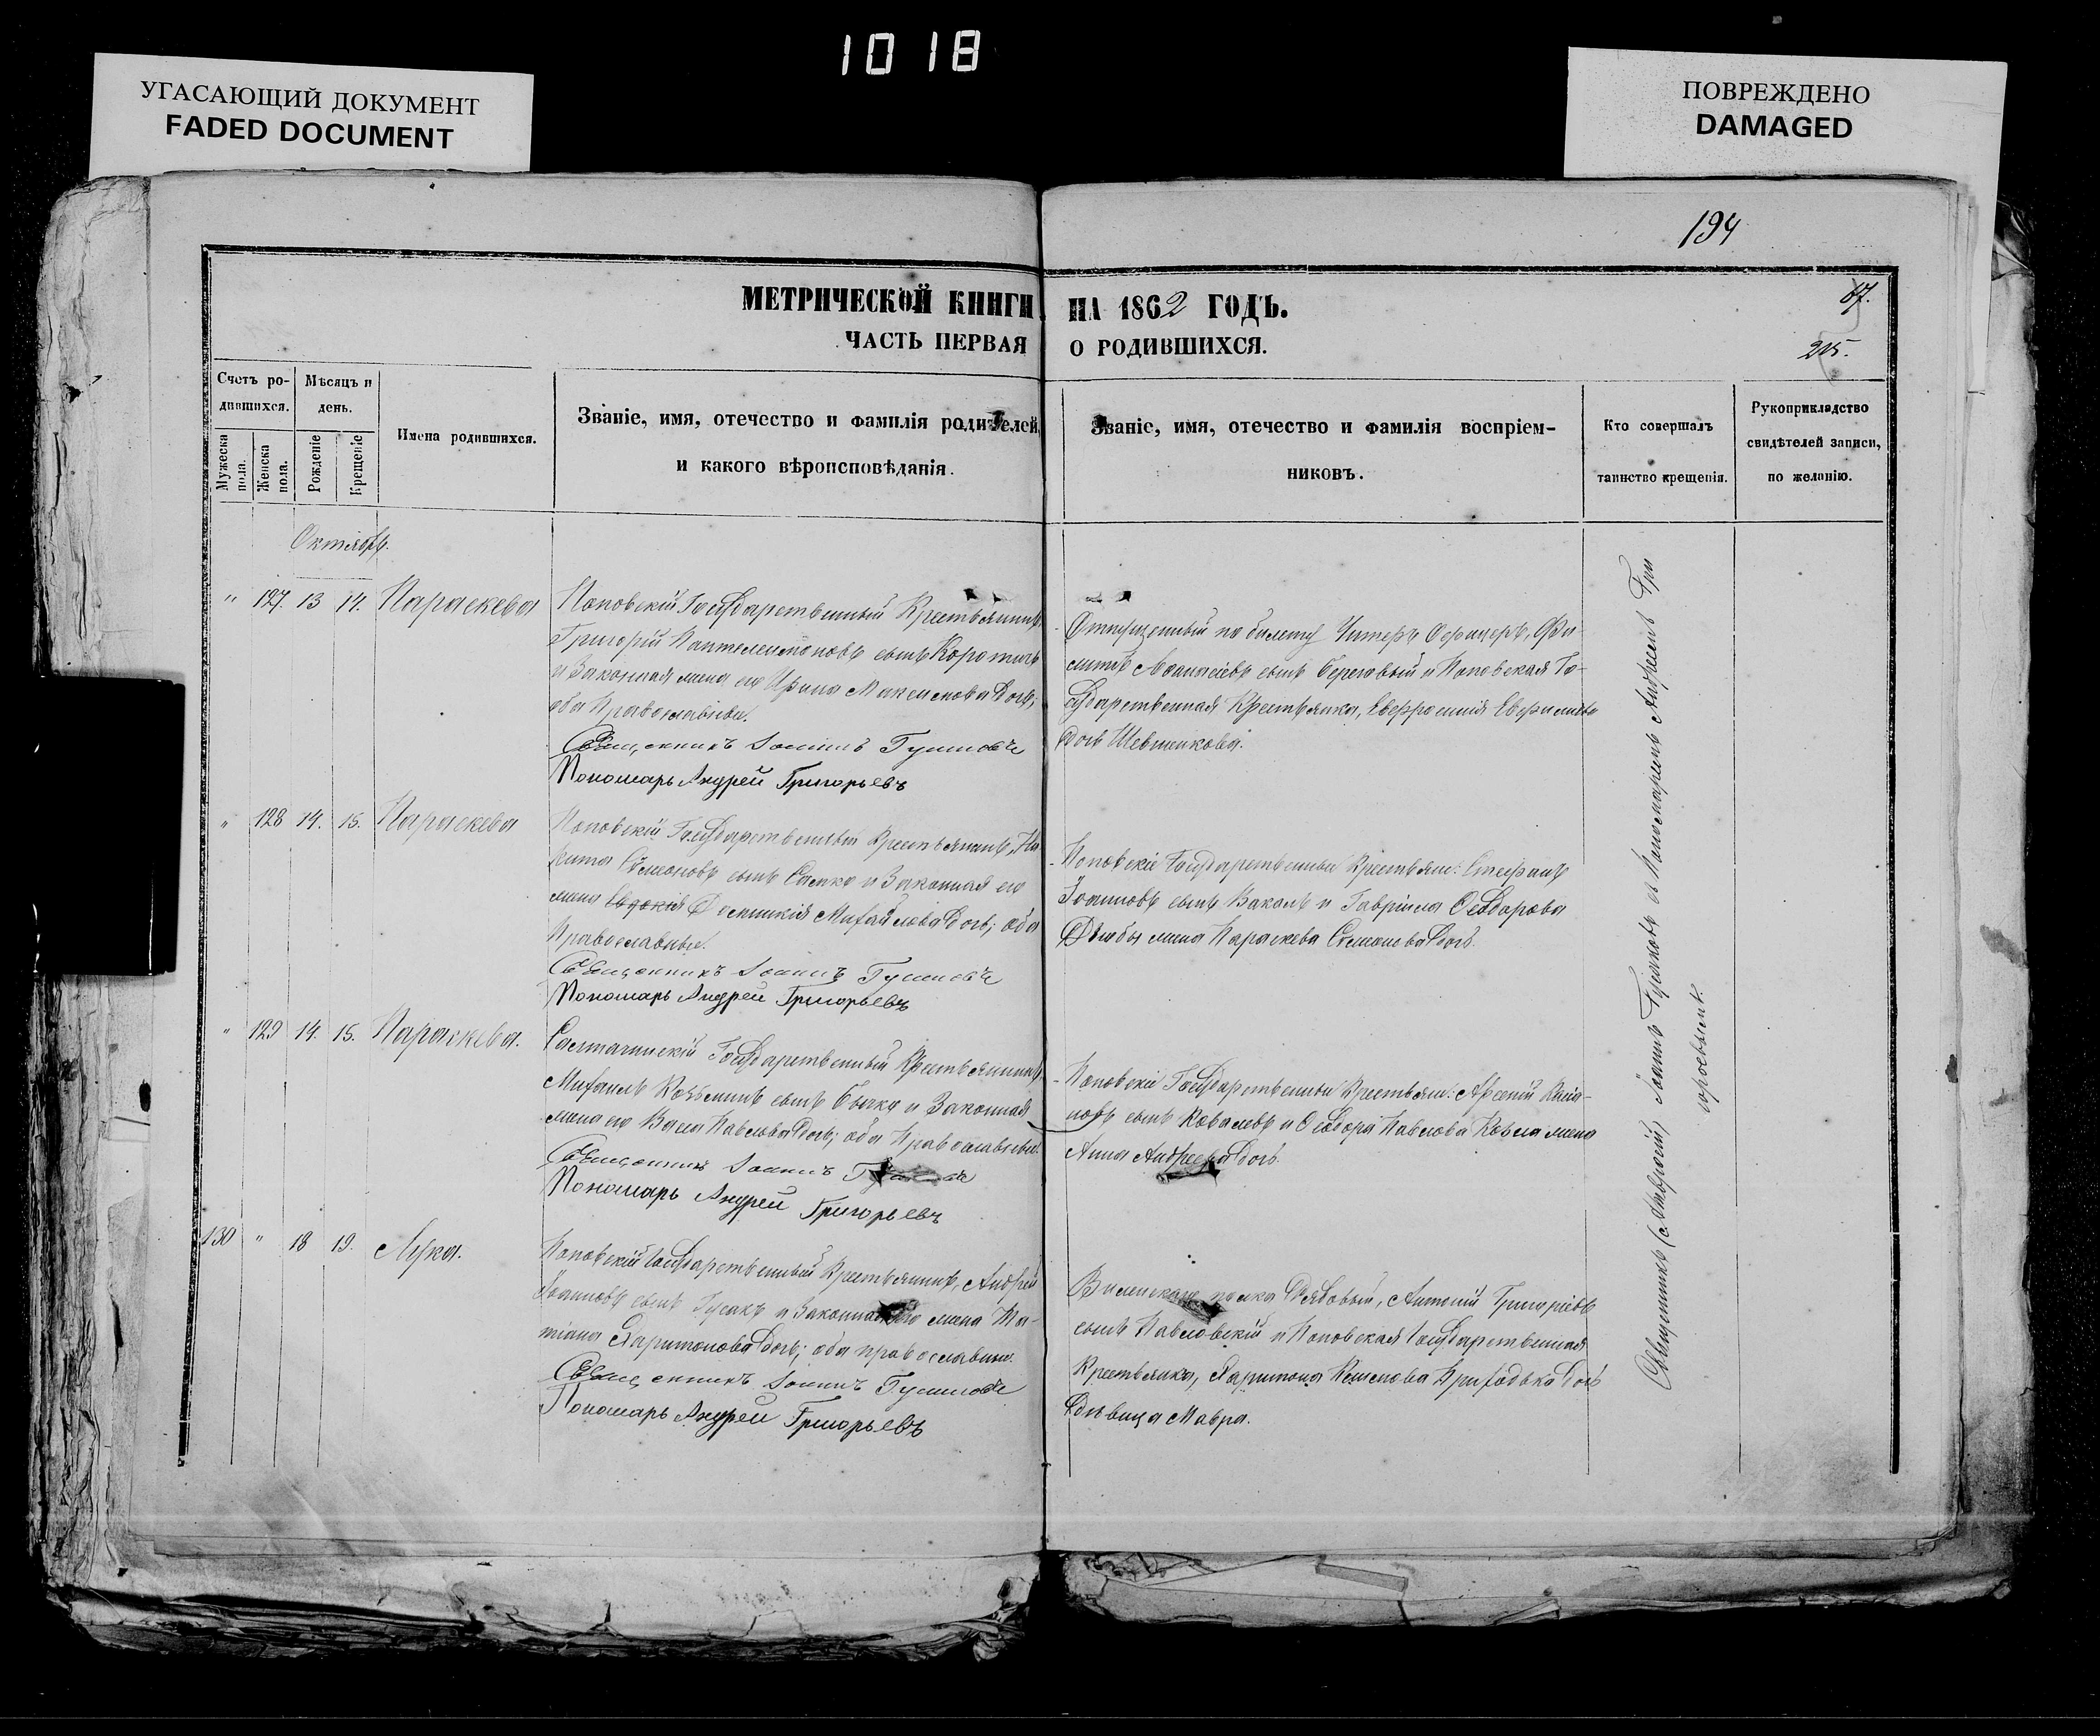 1018
УГАСАЮЩИЙ ДОКУМЕНТ
FADED DOCUMENT
ПОВРЕЖДЕНО
DAMAGED
194
МЕТРИЧЕСКОЙ КНИГИ НА 1862 ГОДЪ.
67.
ЧАСТЬ ПЕРВАЯ О РОДИВШИХСЯ.
215.
Счетъ родившихся.
Мужеска пола.
Женска пола.
Мѣсяцъ и день.
Рожденіе
Крещеніе
Имена родившихся.
Званіе, имя, отечество и фамилія родителей,
и какого вѣроисповѣданія.
Званіе, имя, отечество и фамилія воспріем-
никовъ.
Кто совершалъ
таинство крещенія.
Рукоприкладство
свидѣтелей записи,
по желанію.
Октябрь.
" 127. 13 14. Параскева
Поповскій Государственный Крестьянинъ,
Григорій Пантелеимоновъ сынъ Коротичъ
и Законная жена его Ирина Максимова дочь;
оба Православные.
Священникъ Іоаннъ
Пономарь Андрей Григорьевъ
Отпущенный по билету Унтеръ Офицеръ,
сынъ Береговый и Поповская Го-
сударственная Крестьянка, Евфросинія
дочь Шевченкова.
" 128 14. 15. Параскева
Поповскій Государственный Крестьянинъ, Ни-
кита Сѵмеоновъ сынъ и Законная его
жена Евдокія Михайлова дочь; оба
Православные.
Священникъ Іоаннъ
Пономарь Андрей Григорьевъ
Поповскіе Государственные Крестьян: Стефанъ
Іоанновъ сынъ и Гавріила Ѳеодорова
жена Параскева Сѵмеонова дочь.
" 129 14. 15. Параскева.
Государственный Крестьянинъ,
Михаилъ Козьминъ сынъ Бычко и Законная
жена его Павлова дочь; оба Православные.
Священникъ Іоаннъ
Пономарь Андрей Григорьевъ
Поповскіе Государственные Крестьян: Арсеній
сынъ Ковалевъ и Ѳеодора Павлова жена
Анна Андреева дочь.
130 " 18 19. Лука.
Поповскій Государственный Крестьянинъ, Андрей
Іоанновъ сынъ Гусакъ и Законная его жена Та-
тіана Харитонова дочь; оба православные.
Священникъ Іоаннъ
Пономарь Андрей Григорьевъ
Виленскаго полка Рядовый, Антоній Григоріевъ
сынъ Павловскій и Поповская Государственная
Крестьянка, Харитона Приходька дочь
дѣвица Мавра.
Священникъ Іоаннъ съ Пономаремъ Андреемъ Гри
горьевымъ.